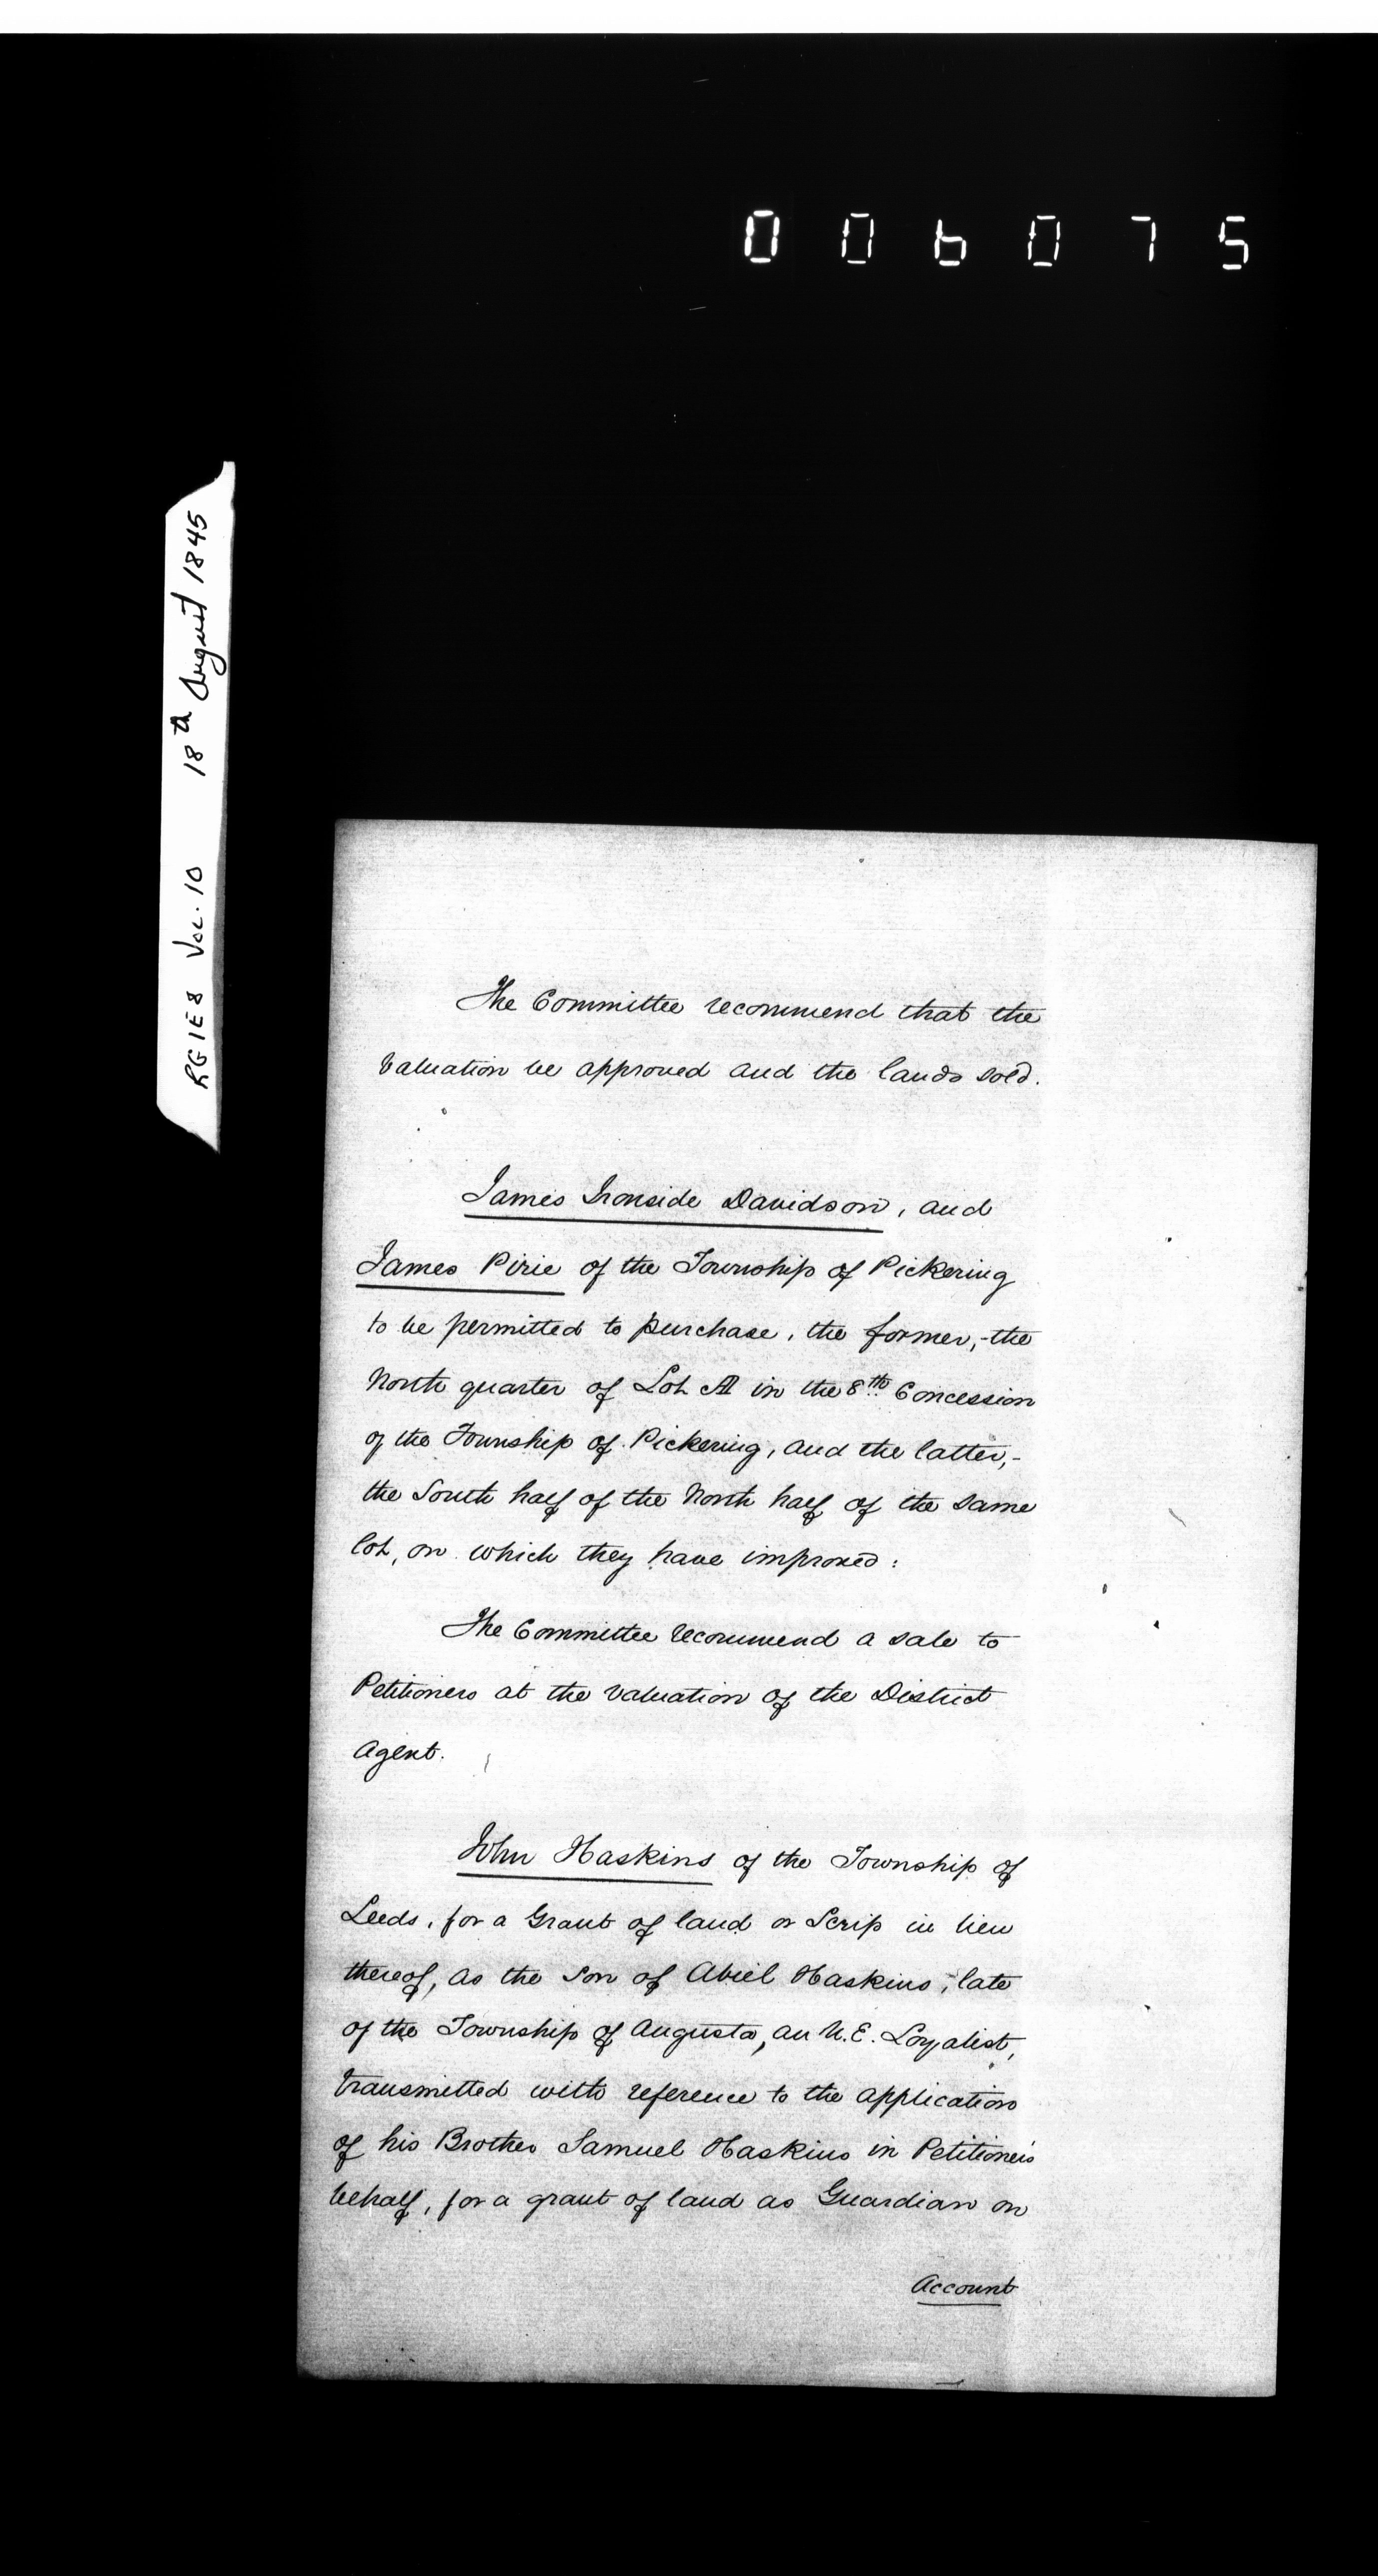 006075
RG1E8 Vol. 10 18th August 1845
The Committee recommend that the
valuation be approved and the lands sold.
James Ironside Davidson, and
James Pirie of the Township of Pickering
to be permitted to purchase, the former,-the
North quarter of Lot A in the 8th Concession
of the Township of Pickering, and the latter,-
the South half of the North half of the same
lot, on which they have improved:
The Committee recommend a sale to
Petitioners at the valuation of the District
Agent.
John Haskins of the Township of
Leeds, for a Grant of land or Scrip in lieu
thereof, as the son of Abiel Haskins, late
of the Township of Augusta, an U.E. Loyalist,
transmitted with reference to the application
of his Brother Samuel Haskins in Petitioner's
behalf, for a grant of land as Guardian on
Account